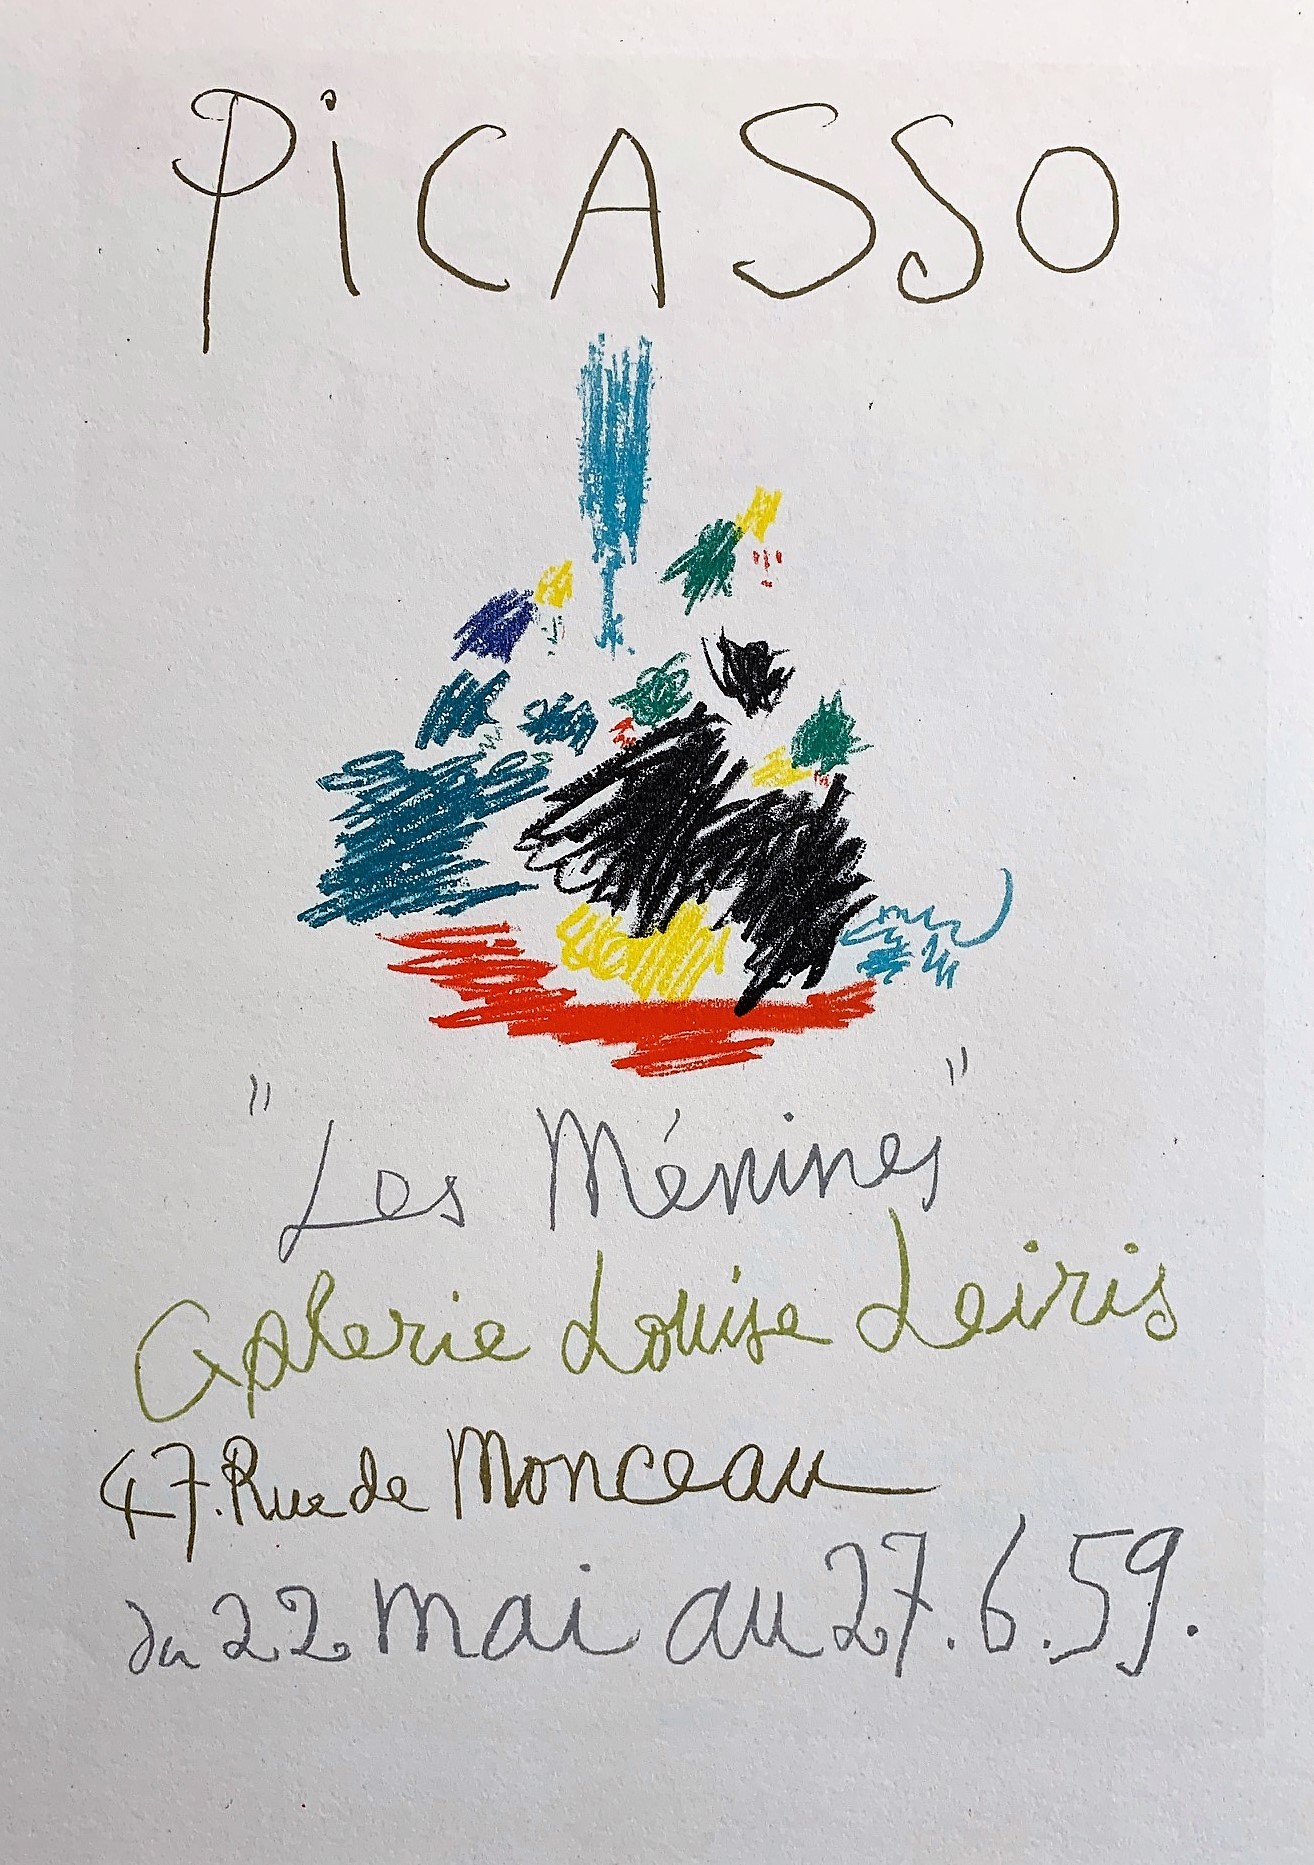 PiCASSO
"Les Ménines"
Galerie Louise Leiris
47. Rue de Monceau
du 22 mai au 27.6.59.